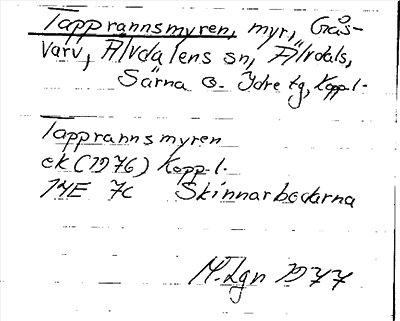 Tapprannsmyren, myr, Gås-
varv, Älvdalens sn, Älvdals,
Särna o. Idre tg, Kopp.l.
Tapprannsmyren
ek (1976) Kopp.l.
14E 7c Skinnarbodarna
M.Lgn 1977